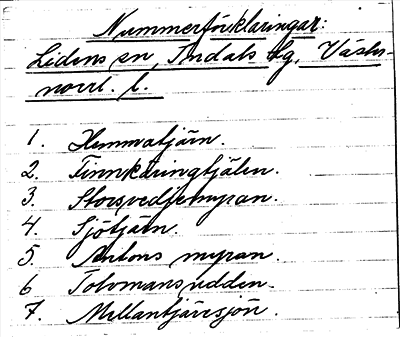 Nummerförklaringar:
Lidens sn, Indals tg, Väster-
norrl. l.
1. Hemmatjärn.
2. Finnkäringtjälen.
3. Storsvedjemyran.
4. Sjötjärn.
5. Antons myran.
6 Tolvmansudden.
7. Mellantjärnsjön.